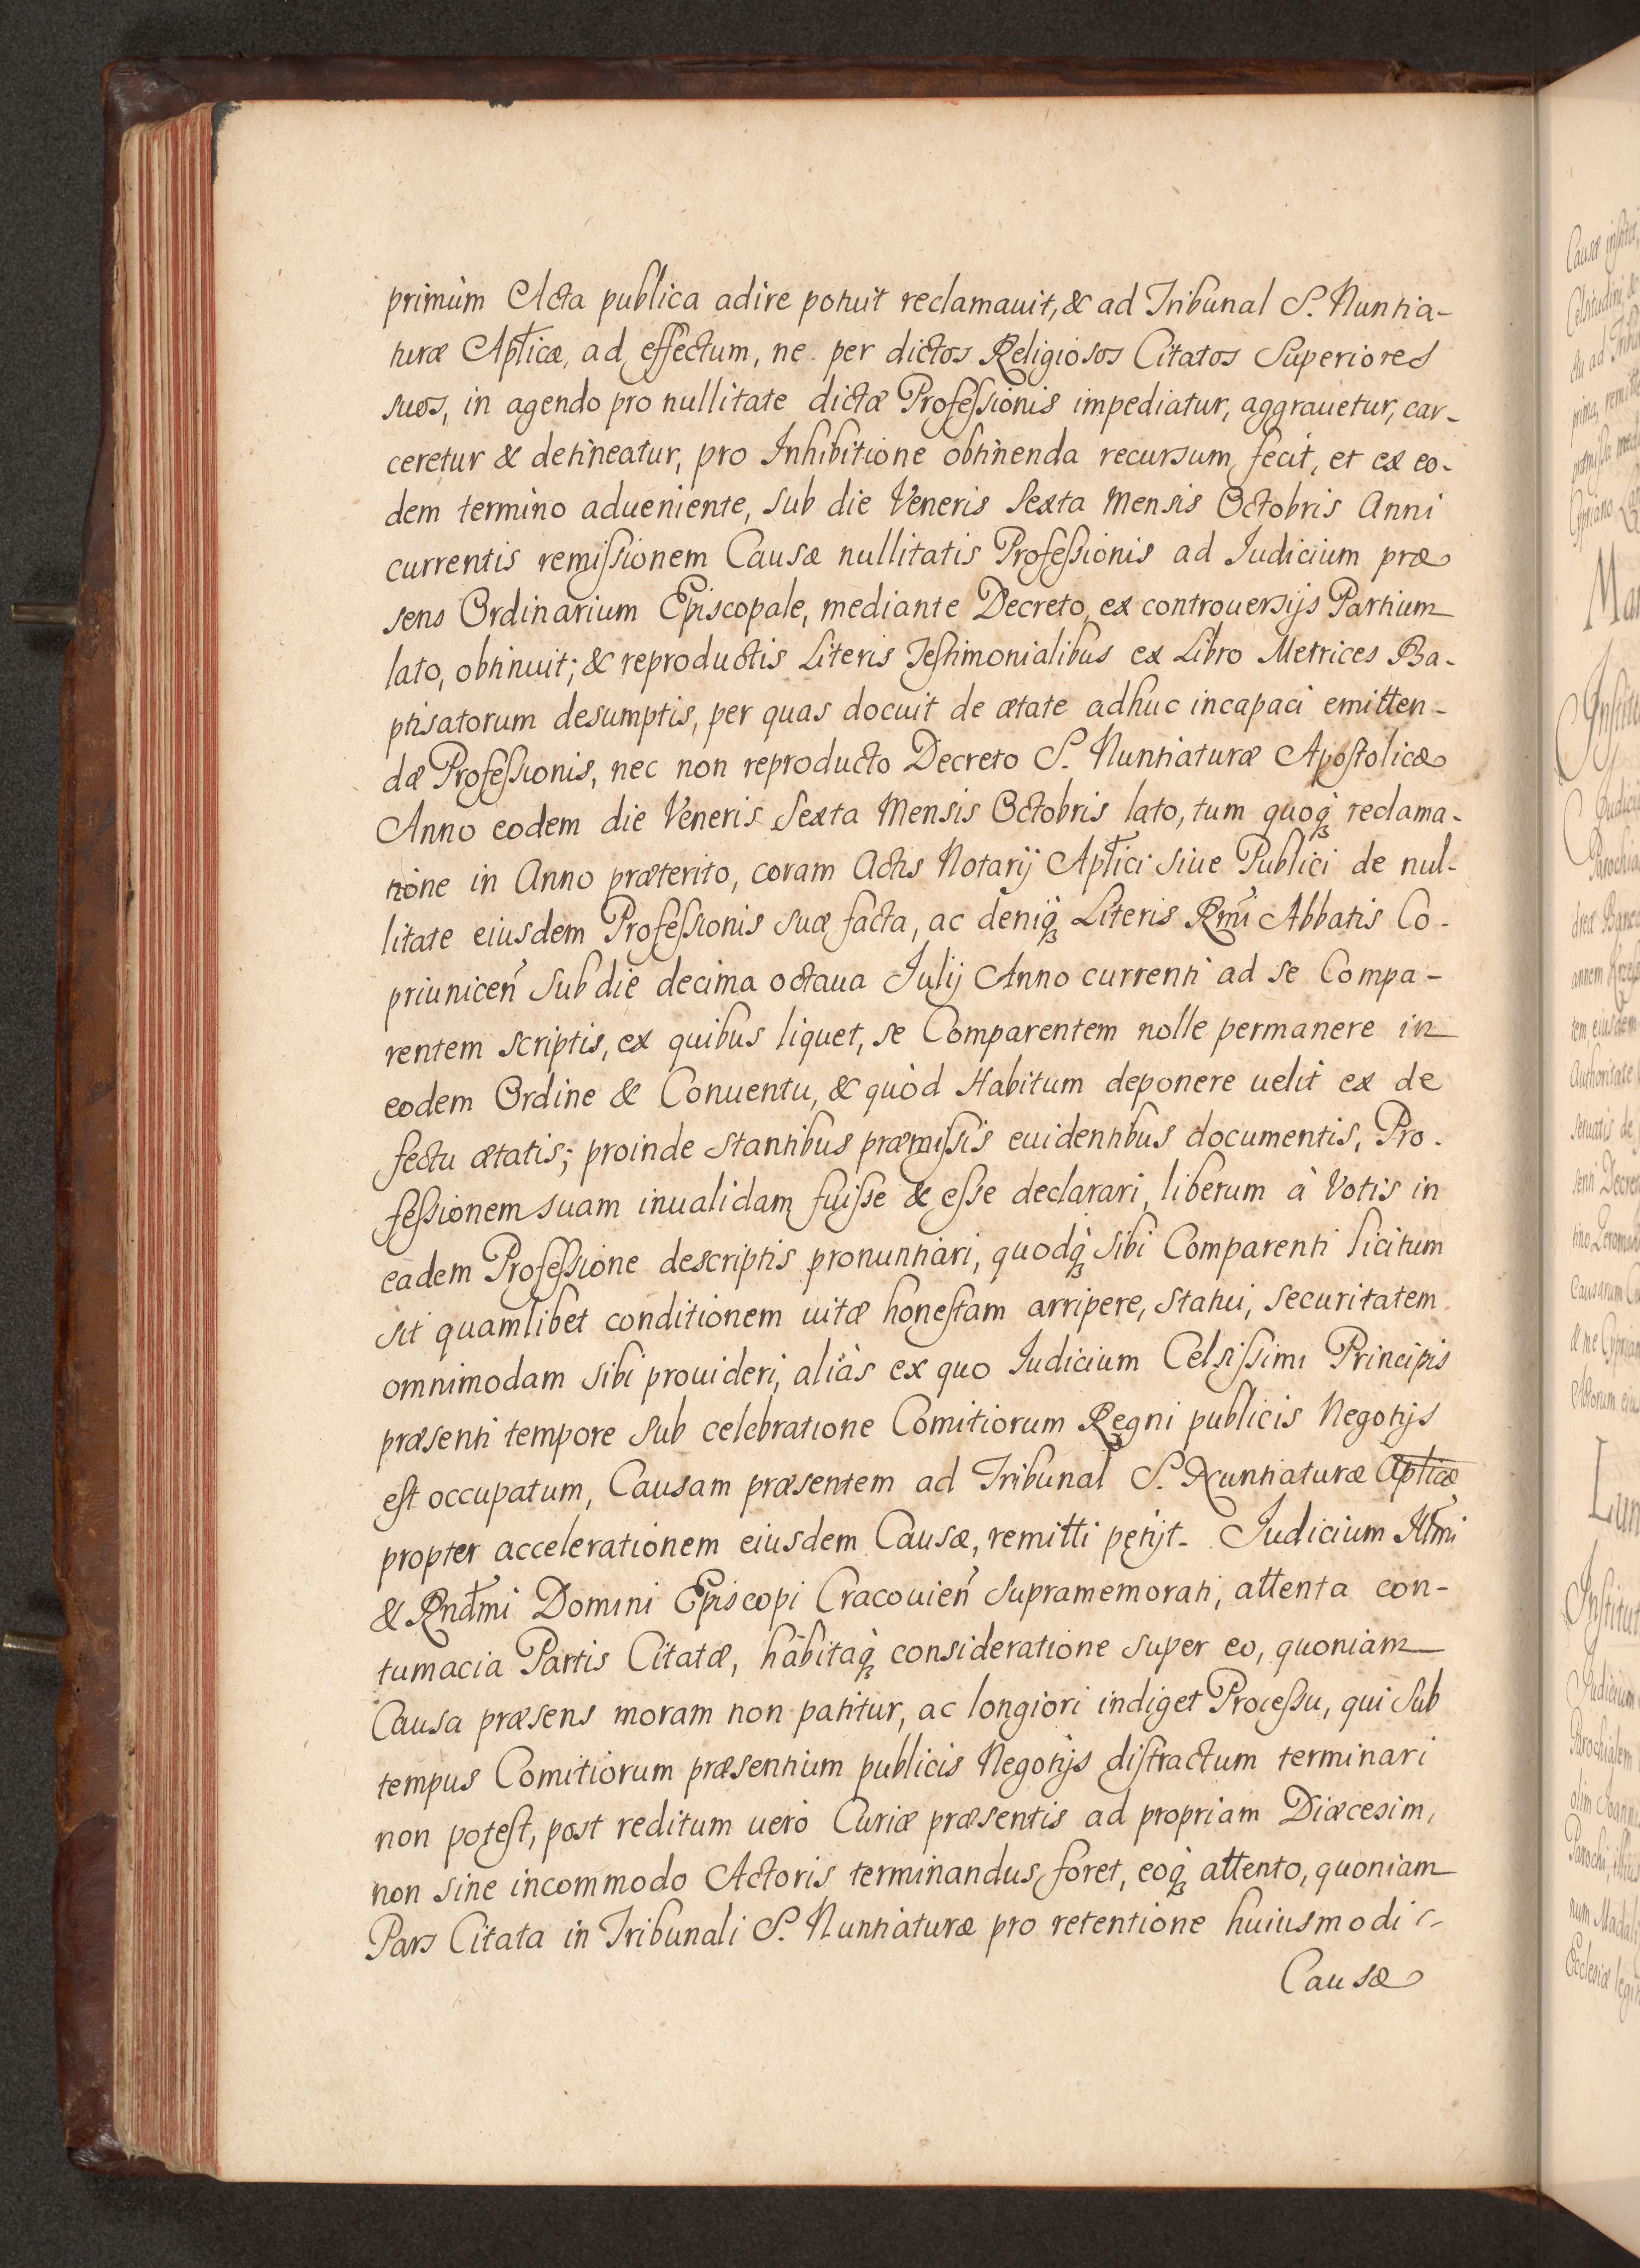 primùm Acta publica adire potuit reclamauit, & ad Tribunal S. Nuntia-
turæ Aptlicæ, ad effectum, ne per dictos Religiosos Citatos Superiores
suos, in agendo pro nullitate dictæ Professionis impediatur, aggrauetur, car-
ceretur & detineatur, pro Inhibitione obtinenda recursum fecit, et ex eo-
dem termino adueniente, sub die Veneris Sexta Mensis Octobris Anni
currentis remissionem Causæ nullitatis Professionis ad Iudicium præ
sens Ordinarium Episcopale, mediante Decreto, ex controuersijs Partium
lato, obtinuit; & reproductis Literis Testimonialibus ex Libro Metrices Ba-
ptisatorum desumptis, per quas docuit de ætate adhuc incapaci emitten-
dæ Professionis, nec non reproducto Decreto S. Nuntiaturæ Apostolicæ
Anno eodem die Veneris Sexta Mensis Octobris lato, tum quoq reclama-
tione in Anno præterito, coram Actis Notarij Aptlici siue Publici de nul-
litate eiusdem Professionis suæ facta, ac deniq Literis Rmi Abbatis Co-
priunicen sub die decima octaua Julij Anno currenti ad se Compa-
rentem scriptis, ex quibus liquet, se Comparentem nolle permanere in
eodem Ordine & Conuentu, & quòd Habitum deponere uelit ex de
fectu ætatis; proinde stantibus præmissis euidentibus documentis, Pro-
fessionem suam inualidam fuisse & esse declarari, liberum à Votis in
eadem Professione descriptis pronuntiari, quodq sibi Comparenti licitum
sit quamlibet conditionem uitæ honestam arripere, statui, securitatem
omnimodam sibi prouideri, aliàs ex quo Iudicium Celsissimi Principis
præsenti tempore sub celebratione Comitiorum Regni publicis Negotijs
est occupatum, Causam præsentem ad Tribunal S. Nuntiaturæ Aptlicæ
propter accelerationem eiusdem Causæ, remitti petijt. Iudicium Illmi
& Rndmi Domini Episcopi Cracouien supramemorati, attenta con-
tumacia Partis Citatæ, habitaq consideratione super eo, quoniam
Causa præsens moram non patitur, ac longiori indiget Processu, qui sub
tempus Comitiorum præsentium publicis Negotijs distractum terminari
non potest, post reditum uerò Curiæ præsentis ad propriam Diæcesim,
non sine incommodo Actoris terminandus foret, eoq attento, quoniam
Pars Citata in Tribunali S. Nuntiaturæ pro retentione huiusmodi
Causæ